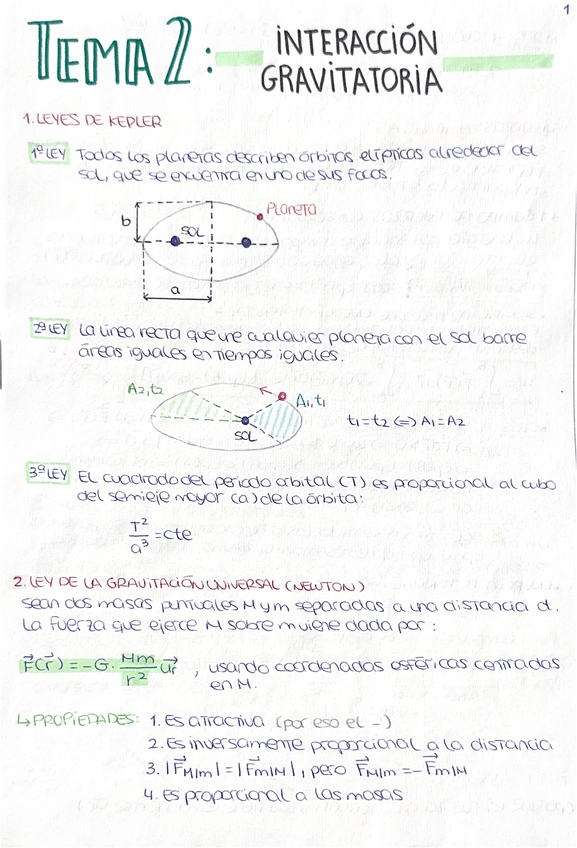 1
TEMA 2:
INTERACCIÓN
GRAVITATORIA
1. LEYES DE KEPLER
1ª LEY Todos los planetas describen órbitas elípticas alrededor del
sol, que se encuentra en uno de sus focos.
Planeta
b
SOL
a
2ª LEY La línea recta que une cualquier planeta con el sol barre
áreas iguales en tiempos iguales.
A2,t2
A1,t1
SOL
t1=t2 <=> A1=A2
3ª LEY El cuadrado del periodo orbital (T) es proporcional al cubo
del semieje mayor (a) de la órbita:
T²/a³ = cte
2. LEY DE LA GRAVITACIÓN UNIVERSAL (NEWTON)
Sean dos masas puntuales M y m separadas a una distancia d.
La fuerza que ejerce M sobre m viene dada por:
F⃗(r⃗) = -G · Mm/r² u⃗r , usando coordenadas esféricas centradas
en M.
↳ PROPIEDADES: 1. Es atractiva (por eso el -)
2. Es inversamente proporcional a la distancia
3. |F⃗M/m| = |F⃗m/M|, pero F⃗M/m = -F⃗m/M
4. Es proporcional a las masas